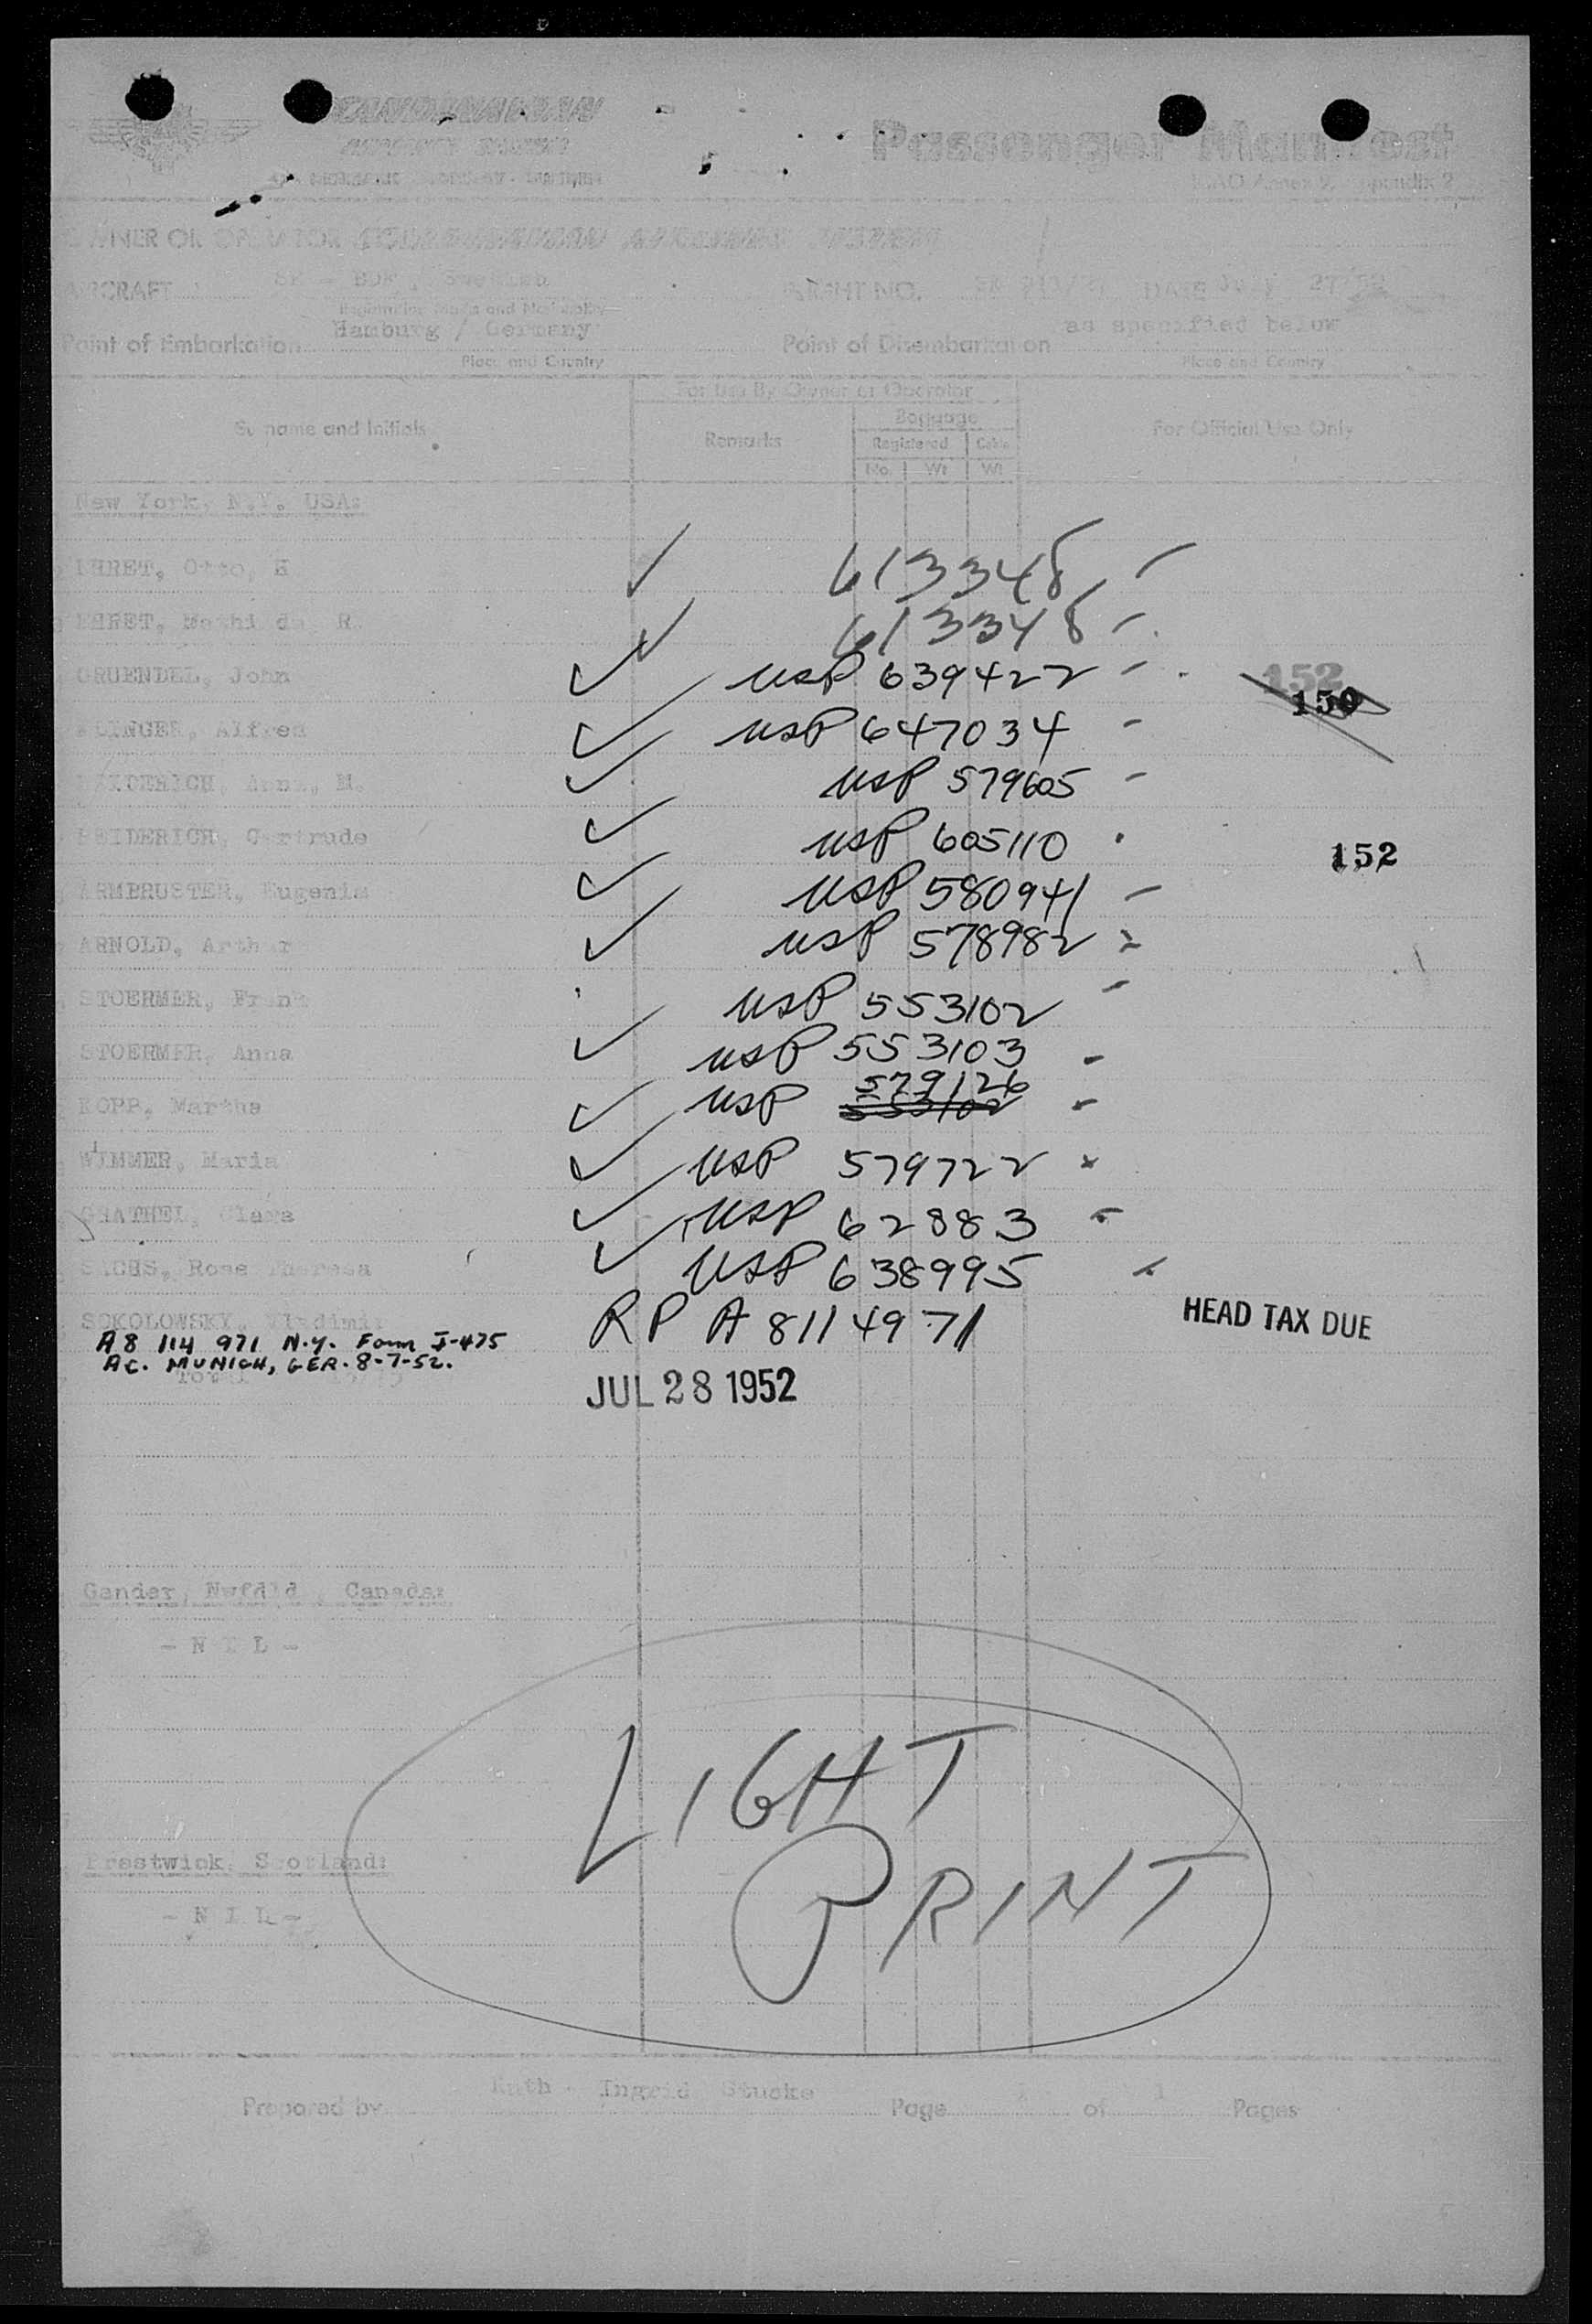 Passenger Manifest
ICAO Annex 9, Appendix 2
OWNER OR OPERATOR
AIRCRAFT SE - BDK, Sweden FLIGHT NO. DATE July 27/52
Registration Marks and Nationality
Point of Embarkation Hamburg / Germany Point of Disembarkation as specified below
Place and Country Place and Country
For Use By Owner or Operator
Surname and Initials Remarks Baggage For Official Use Only
Registered Cabin
No. Wt Wt
New York, N.Y. USA:
Otto, H 613348 -
R. 613348 -
GRUENDEL, John USP 639422 - 152
150
Alfred USP 647034 -
M. USP 579605 -
HEIDERICH, Gertrude USP 605110
152
ARMBRUSTER, Eugenia USP 580941 -
ARNOLD, Arthur USP 578982
STOERMER, Frank USP 553102 -
STOERMER, Anna USP 553103 -
579126
Martha USP 553102 -
WIMMER, Maria USP 579722
Clara USP 62883 -
SACHS, Rose Theresa USP 638995
SOKOLOWSKY, Vladimir RP A 8114971 HEAD TAX DUE
A8 114 971 N.Y. Form I-475
AC. MUNICH, GER. 8-7-52.
Total JUL 28 1952
Gander, Nwfdld, Canada:
- N I L -
LIGHT
PRINT
Prestwick, Scotland:
- N I L -
Prepared by Ruth - Ingrid Stucke Page 1 of 1 Pages